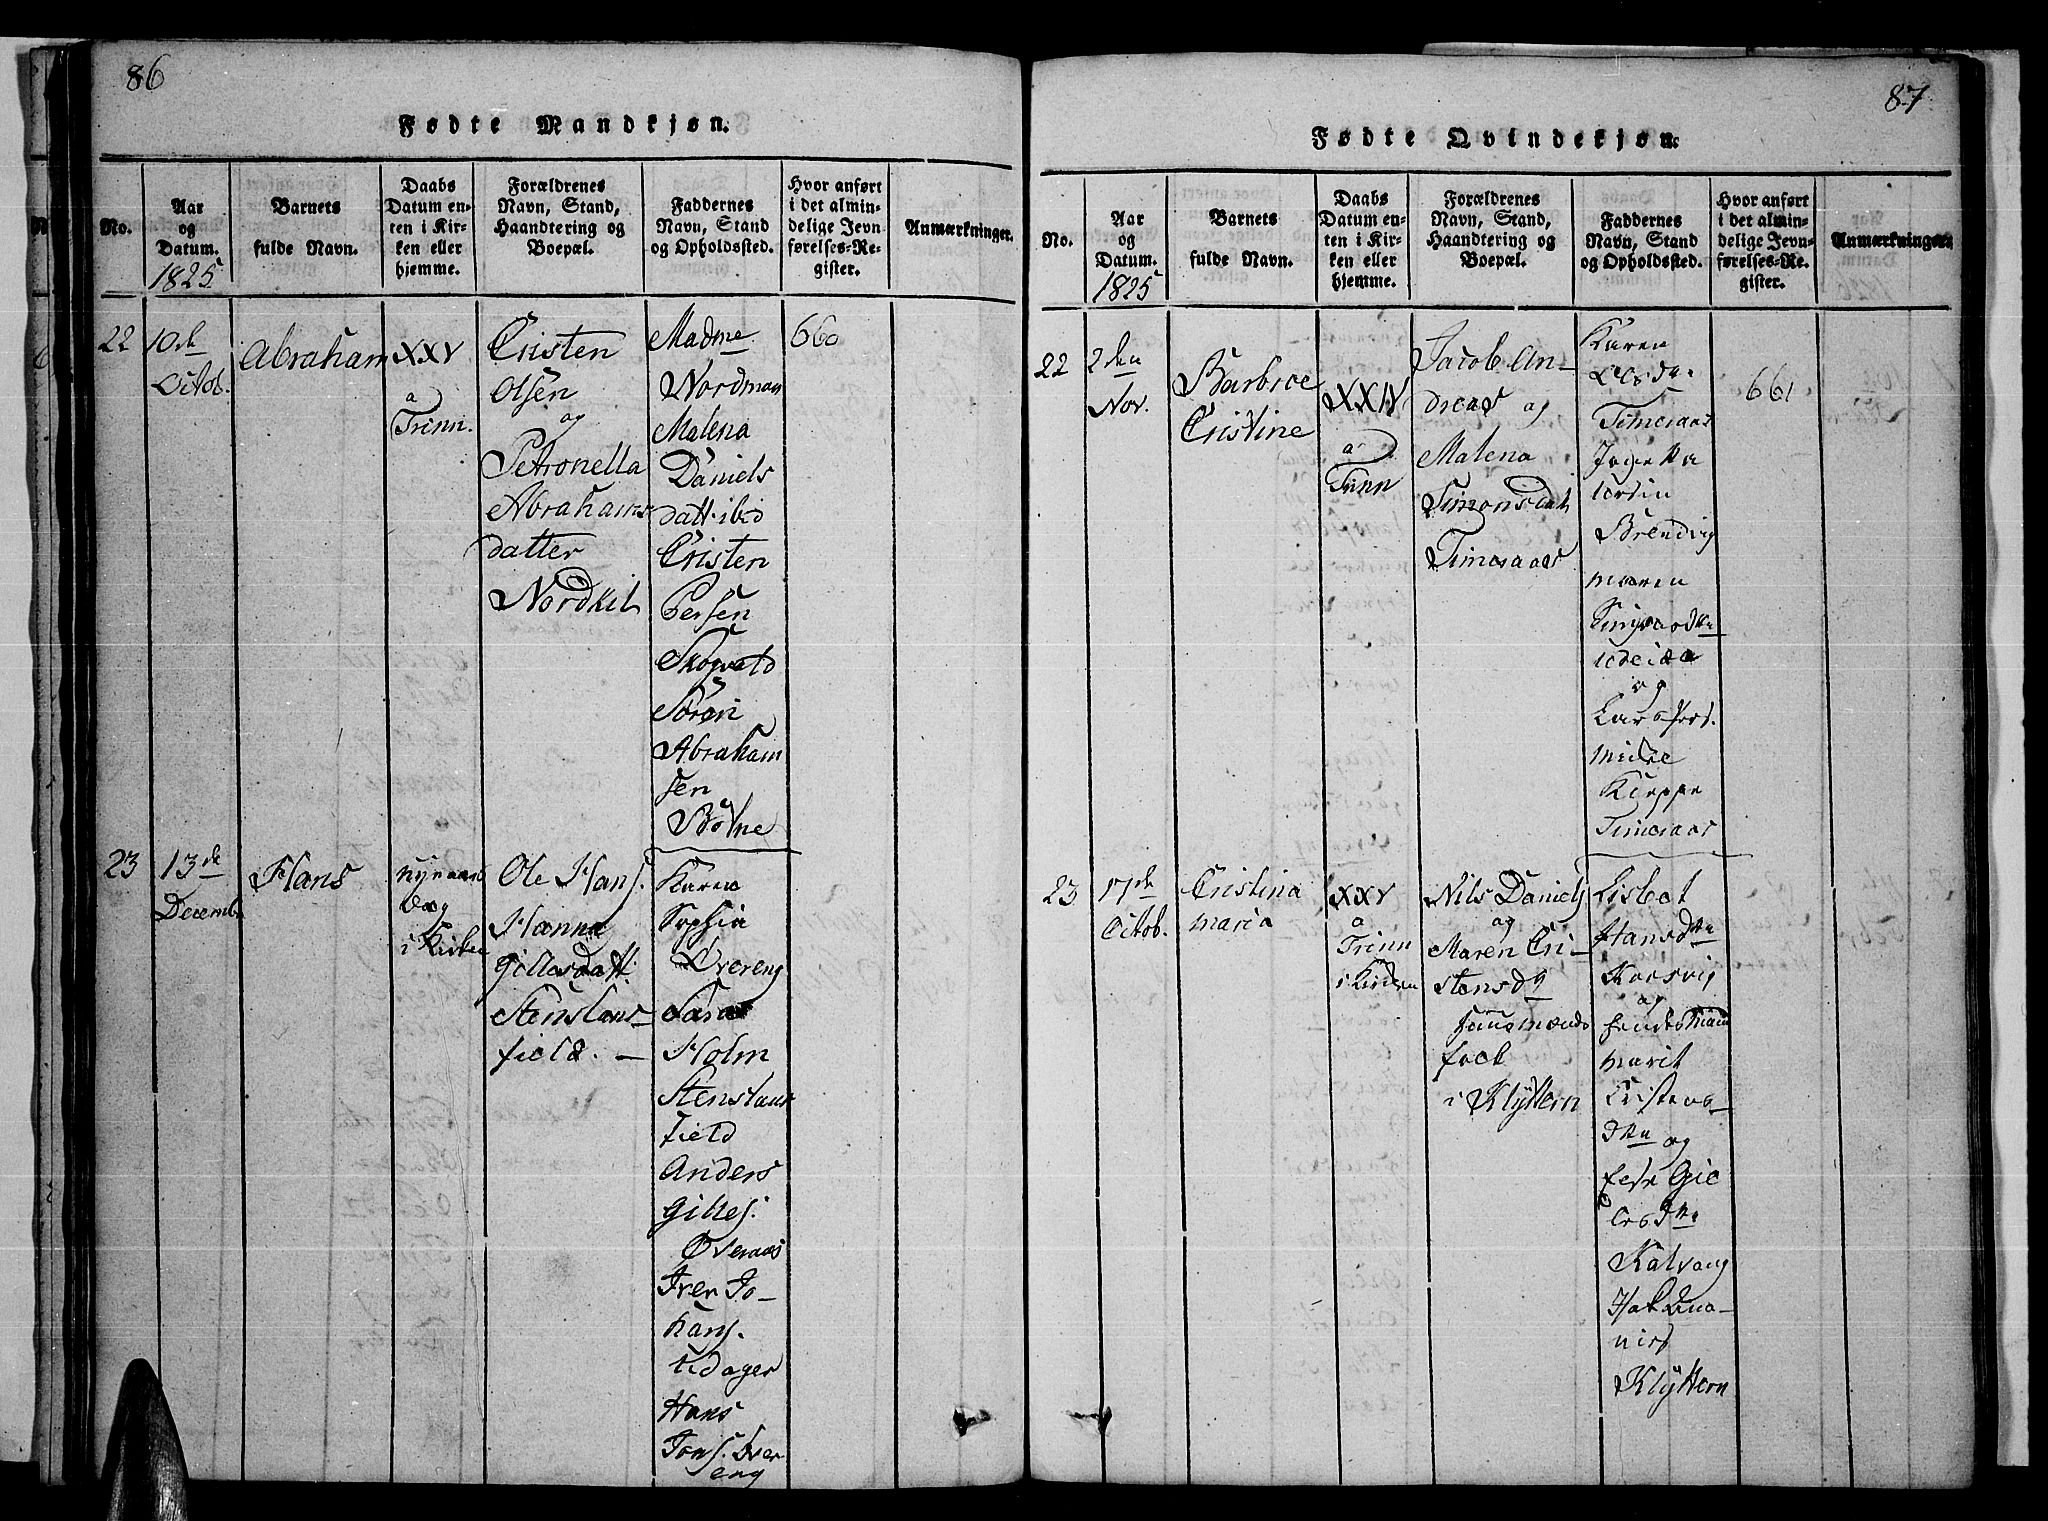 86
Fødte Mandkjøn.
No.
Aar
og
Datum.
1825
Barnets
fulde Navn.
Daabs
Datum en-
ten i Kir-
ken eller
hjemme.
Forældrenes
Navn, Stand,
Haandtering og
Boepæl.
Faddernes
Navn, Stand
og Opholdssted.
Hvor anført
i det almin-
delige Jevn-
førelses-Re-
gister.
Anmærkninger.
22
10de
Octob.
Abraham
XXV
a
Trinn.
Cristen
Olsen
og
Petronella
Abrahams
datter
Nordkil
Madme
Nordman
Malena
Daniels
datt. ibid
Cristen
Persen
Skogvold
Sören
Abraham
sen
660
23
13de
Decemb.
Hans
nyaars
Dag
i Kirken
Ole Hans.
Hanna
Gillesdatt.
Stenslans-
field.
Karen
Sophia
Overeng
Sara
Holm
Stenslans
field
Anders
Gilles.
Overaas
Iver Jo-
hans.
Hans
Jons. Over
eng
87
Fødte Qvindekjøn.
No.
Aar
og
Datum.
1825
Barnets
fulde Navn.
Daabs
Datum en-
ten i Kir-
ken eller
hjemme.
Forældrenes
Navn, Stand,
Haandtering og
Boepæl.
Faddernes
Navn, Stand
og Opholdssted.
Hvor anført
i det almin-
delige Jevn-
førelses-Re-
gister.
Anmærkninger.
22
2den
Nov.
Barbroe
Cristine
XXIV
a
Trinn
Jacob An-
dreas og
Malena
Simonsdat
Timeraas
Karen
Timeraas
Brendvig
maren
og
Lars
Timeraas
661
23
17de
Octob.
Cristina
maria
XXV
a
Trinn
i Kirken
Nils Daniels
og
Maren Cri-
stensd
huusmands
folk
i Klÿttern
Lisbet
Hansd
Korsvig
og
marit
og
Kalvang
Klÿttern